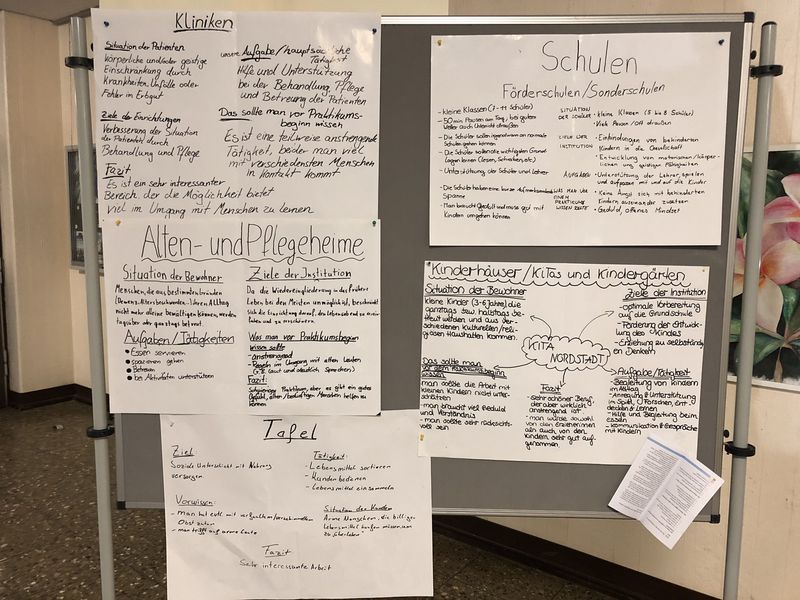 Kliniken
Situation der Patienten
Körperliche und/oder geistige
Einschränkung durch
Krankheiten, Unfälle oder
Fehler im Erbgut
Ziele der Einrichtungen
Verbesserung der Situation
der Patienten durch
Behandlung und Pflege
Fazit
Es ist ein sehr interessanter
Bereich, der die Möglichkeit bietet
viel im Umgang mit Menschen zu lernen.
unsere Aufgabe/hauptsächliche
Tätigkeit
Hilfe und Unterstützung
bei der Behandlung, Pflege
und Betreuung der Patienten
Das sollte man vor Praktikums-
beginn wissen
Es ist eine teilweise anstrengende
Tätigkeit, bei der man viel
mit verschiedensten Menschen
in Kontakt kommt
Schulen
Förderschulen/Sonderschulen
- kleine Klassen (7-11 Schüler)
- 50 min Pausen am Tag, bei gutem
Wetter auch Unterricht draußen
- Die Schüler sollen irgendwann an normale
Schulen gehen können
- Die Schüler sollen alle wichtigen Grund
lagen lernen (Lesen, Schreiben, etc.)
- Unterstützung der Schüler und Lehrer
- Die Schüler haben eine kurze Aufmerksamkeits
Spanne
- Man braucht Geduld und muss gut mit
Kindern umgehen können
SITUATION
DER SCHÜLER
ZIELE DER
INSTITUTION
AUFGABEN
WAS MAN VOR
EINEM
PRAKTIKUM
WISSEN SOLLTE
- kleine Klassen (5 bis 8 Schüler)
- Viele Pausen / Oft draußen
- Einbindungen von behinderten
Kindern in die Gesellschaft
- Entwicklung von motorischen/körper-
lichen und geistigen Fähigkeiten
- Unterstützung der Lehrer, spielen
und aufpassen mit und auf die Kinder
- Keine Angst sich mit behinderten
Kindern auseinander zusetzen
- Geduld, offenes Mindset
Alten- und Pflegeheime
Situation der Bewohner
Menschen, die aus bestimmten Gründen
(Demenz, Altersbeschwerden...) ihren Alltag
nicht mehr alleine bewältigen können, werden
tagsüber oder ganztags betreut.
Aufgaben/Tätigkeiten
Essen servieren
spazieren gehen
Betreuen
bei Aktivitäten unterstützen
Ziele der Institution
Da die Wiedereingliederung in das frühere
Leben bei den Meisten unmöglich ist, beschränkt
sich die Einrichtung darauf, den Lebensabend zu
Was man vor Praktikumsbeginn
wissen sollte
- anstrengend
- Regeln im Umgang mit alten Leuten
(z.B. laut und deutlich sprechen)
Fazit:
Praktikum, aber es gibt ein gutes
Gefühl, alten/bedürftigen Menschen helfen zu
können.
Kinderhäuser/Kitas und Kindergärten
Situation der Bewohner
kleine Kinder (3-6 Jahre), die
ganztags bzw. halbtags be-
treut werden und aus ver-
schiedenen kulturellen/reli-
giösen Haushalten kommen.
Ziele der Institution
- optimale Vorbereitung
auf die Grundschule
- Förderung der Entwick-
lung des Kindes
- Erziehung zu selbständig
Denken
KITA
NORDSTADT
Das sollte man
vor dem Praktikumsbeginn
wissen
- man sollte die Arbeit mit
kleinen Kindern nicht unter-
schätzen
- man braucht viel Geduld
und Verständnis
- man sollte sehr rücksichts-
voll sein
Fazit
- sehr schöner Beruf,
der aber wirklich
anstrengend ist
- man wurde sowohl
von den Erzieherinnen
als auch von den
Kindern sehr gut auf
genommen
Aufgabe/Tätigkeit
- Begleitung von Kindern
im Alltag
- Anregung & Unterstützung
im Spiel, Forschen, Ent-
decken & Lernen
- Hilfe und Begleitung beim
Essen
- Kommunikation & Gespräche
mit Kindern
Tafel
Ziel
Soziale Unterschicht mit Nahrung
versorgen
Vorwissen:
- man hat evtl. mit verfaultem/verschimmeltem
Obst zutun
- man trifft auf arme Leute
Tätigkeit:
- Lebensmittel sortieren
- Kunden bedienen
- Lebensmittel einsammeln
Situation der Kunden
Arme Menschen, die billige
Lebensmittel kaufen müssen, um
zu überleben
Fazit
Sehr interessante Arbeit